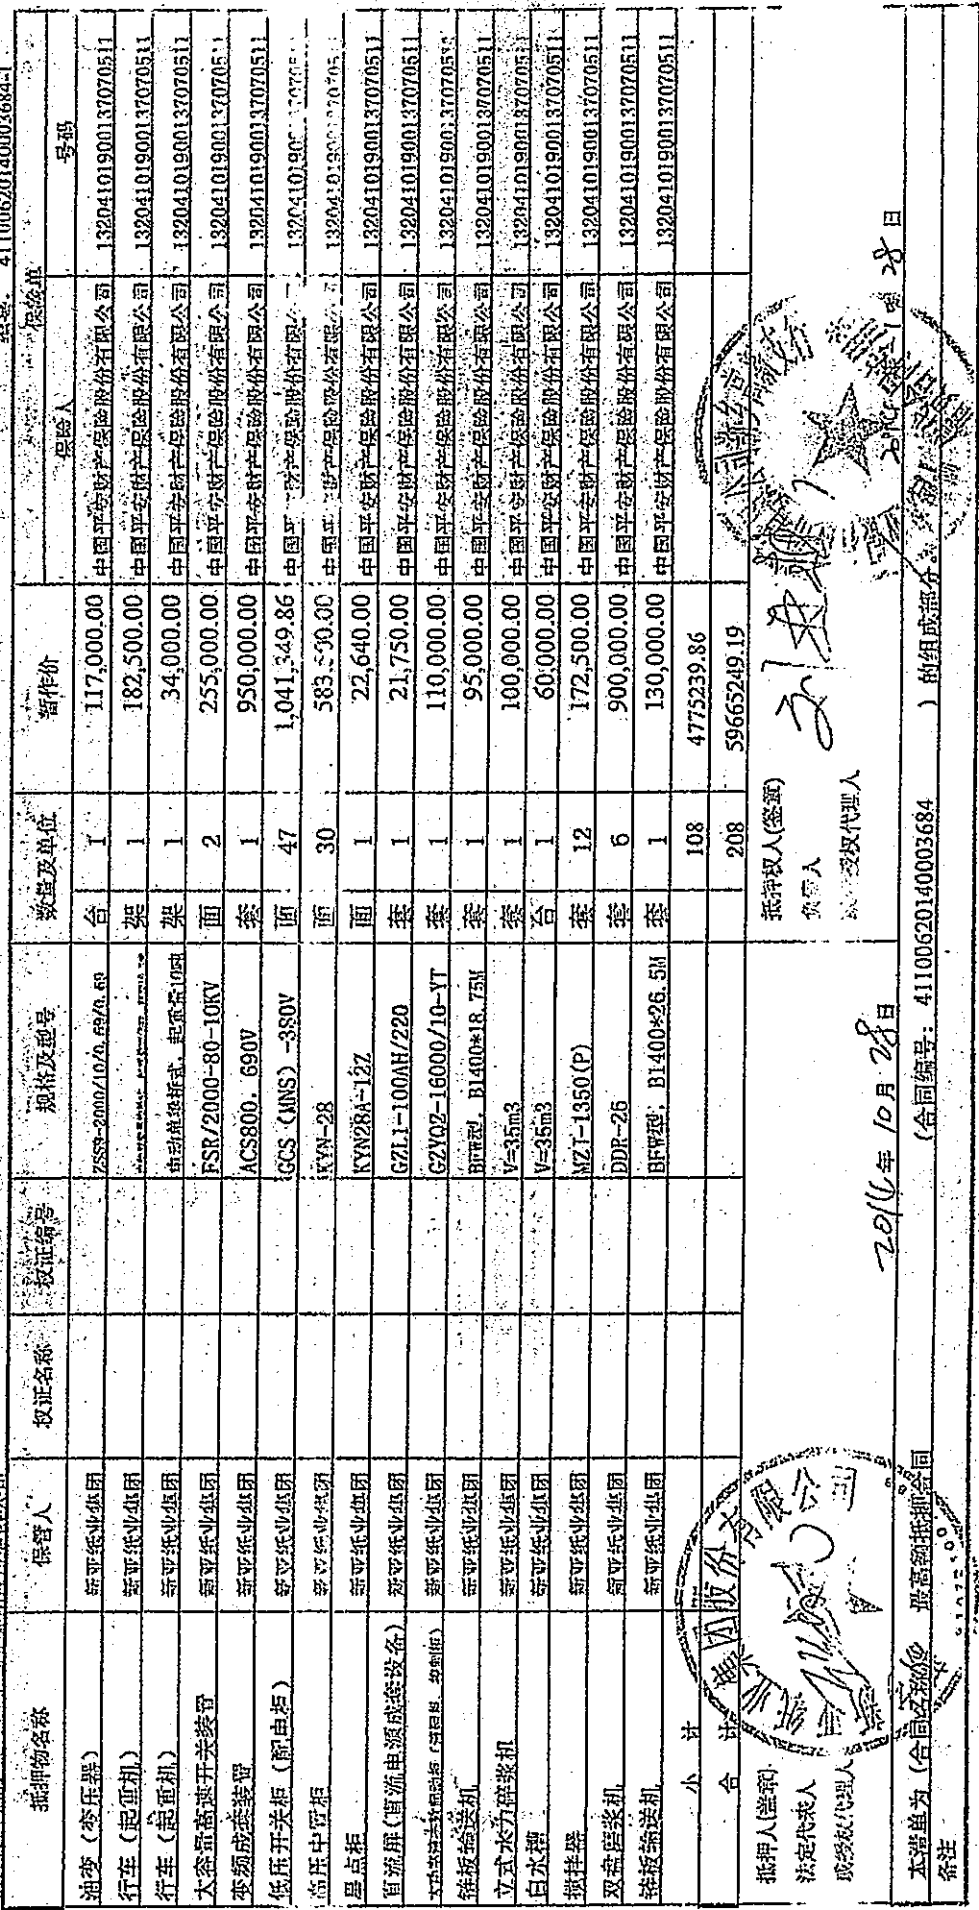 编号: 41100620140003684-1
抵押物名称 保管人 权证名称 权证编号 规格及型号 数量及单位 暂作价 保险单
保险人 号码
油变（变压器） 新亚纸业集团 ZSS9-2000/10/0.69/0.69 台 1 117,000.00 中国平安财产保险股份有限公司 13204101900137070511
行车（起重机） 新亚纸业集团 架 1 182,500.00 中国平安财产保险股份有限公司 13204101900137070511
行车（起重机） 新亚纸业集团 电动单梁桥式，起重量10吨 架 1 34,000.00 中国平安财产保险股份有限公司 13204101900137070511
大容量高速开关装置 新亚纸业集团 FSR/2000-80-10KV 面 2 255,000.00 中国平安财产保险股份有限公司 13204101900137070511
变频成套装置 新亚纸业集团 ACS800，690V 套 1 950,000.00 中国平安财产保险股份有限公司 13204101900137070511
低压开关柜（配电柜） 新亚纸业集团 GCS（MNS）-380V 面 47 1,041,349.86 中国平 财产保险股份有限
高压中置柜 新亚纸业集团 KYN-28 面 30 中国平 财产保险股份有限公司
星点柜 新亚纸业集团 KYN28A-12Z 面 1 22,640.00 中国平安财产保险股份有限公司 13204101900137070511
直流屏（直流电源成套设备） 新亚纸业集团 GZL1-100AH/220 套 1 21,750.00 中国平安财产保险股份有限公司 13204101900137070511
新亚纸业集团 GZYQ2-16000/10-YT 套 1 110,000.00 中国平安财产保险股份有限公司 13204101900137070511
链板输送机 新亚纸业集团 BFW型，B1400*18.75M 套 1 95,000.00 中国平安财产保险股份有限公司 13204101900137070511
立式水力碎浆机 新亚纸业集团 V=35m3 套 1 100,000.00 中国平安财产保险股份有限公司 13204101900137070511
白水槽 新亚纸业集团 V=35m3 台 1 60,000.00 中国平安财产保险股份有限公司 13204101900137070511
搅拌器 新亚纸业集团 MZT-1350(P) 套 12 172,500.00 中国平安财产保险股份有限公司 13204101900137070511
双盘磨浆机 新亚纸业集团 DDR-26 套 6 900,000.00 中国平安财产保险股份有限公司 13204101900137070511
链板输送机 新亚纸业集团 BFW型，B1400*26.5M 套 1 130,000.00 中国平安财产保险股份有限公司 13204101900137070511
小 计 108 4775239.86
合 计 208 59665249.19
抵押人(签章) 抵押权人(签章)
法定代表人 负责人
或授权代理人 或授权代理人
2014年10月28日 28日
本清单为（合同名称） 最高额抵押合同 （合同编号：41100620140003684 ）的组成部分。
备注